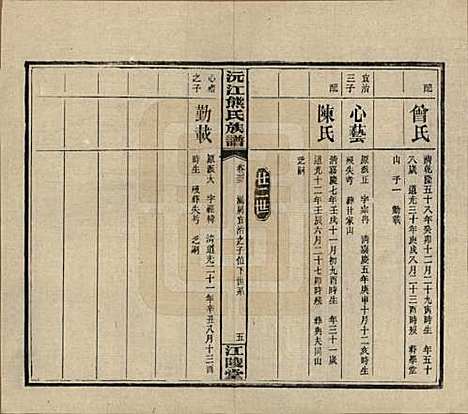 配
曾氏
清乾隆五十八年癸卯十二月二十九寅時生 年五十
八歲 道光三十年庚戌八月二十三日時歿 葬學堂
山 子一 勤載
宜治
三子
心藝
原派正 字宗冉 清嘉慶五年庚申十月十二亥時生
歿失考 葬甘家山
配
陳氏
清嘉慶七年壬戌十一月初九酉時生 年三十一歲
道光十二年壬辰六月二十七卯時歿 葬典夫同山
乏嗣
廿二世
沅江熊氏族譜
卷三 宜治之子位下世系
五
江陵堂
心
之子
勤載
原派大 字經 清道光二十一年辛丑八月十三酉
時生 歿葬失考 乏嗣